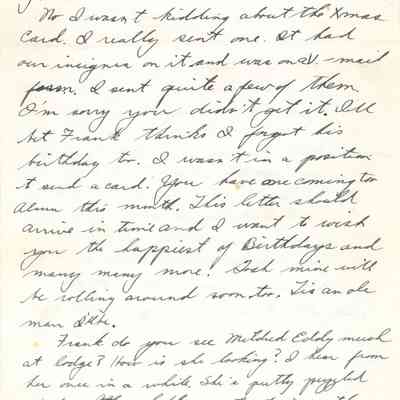 No I wasn't kidding about the Xmas
Card. I really sent one. It had
our insignia on it and was on a V.-mail
form. I sent quite a few of them
I'm sorry you didn't get it. I'll
bet Frank thinks I forgot his
birthday too. I wasn't in a position
to send a card. You have one coming too
this month. This letter should
arrive in time and I want to wish
you the happiest of Birthdays and
many many more! Gosh mine will
be rolling around soon too. Tis an ole
man I be.
Frank do you see Mildred Eddy much
at lodge? How is she looking? I hear from
her once in a while. She's pretty puzzled